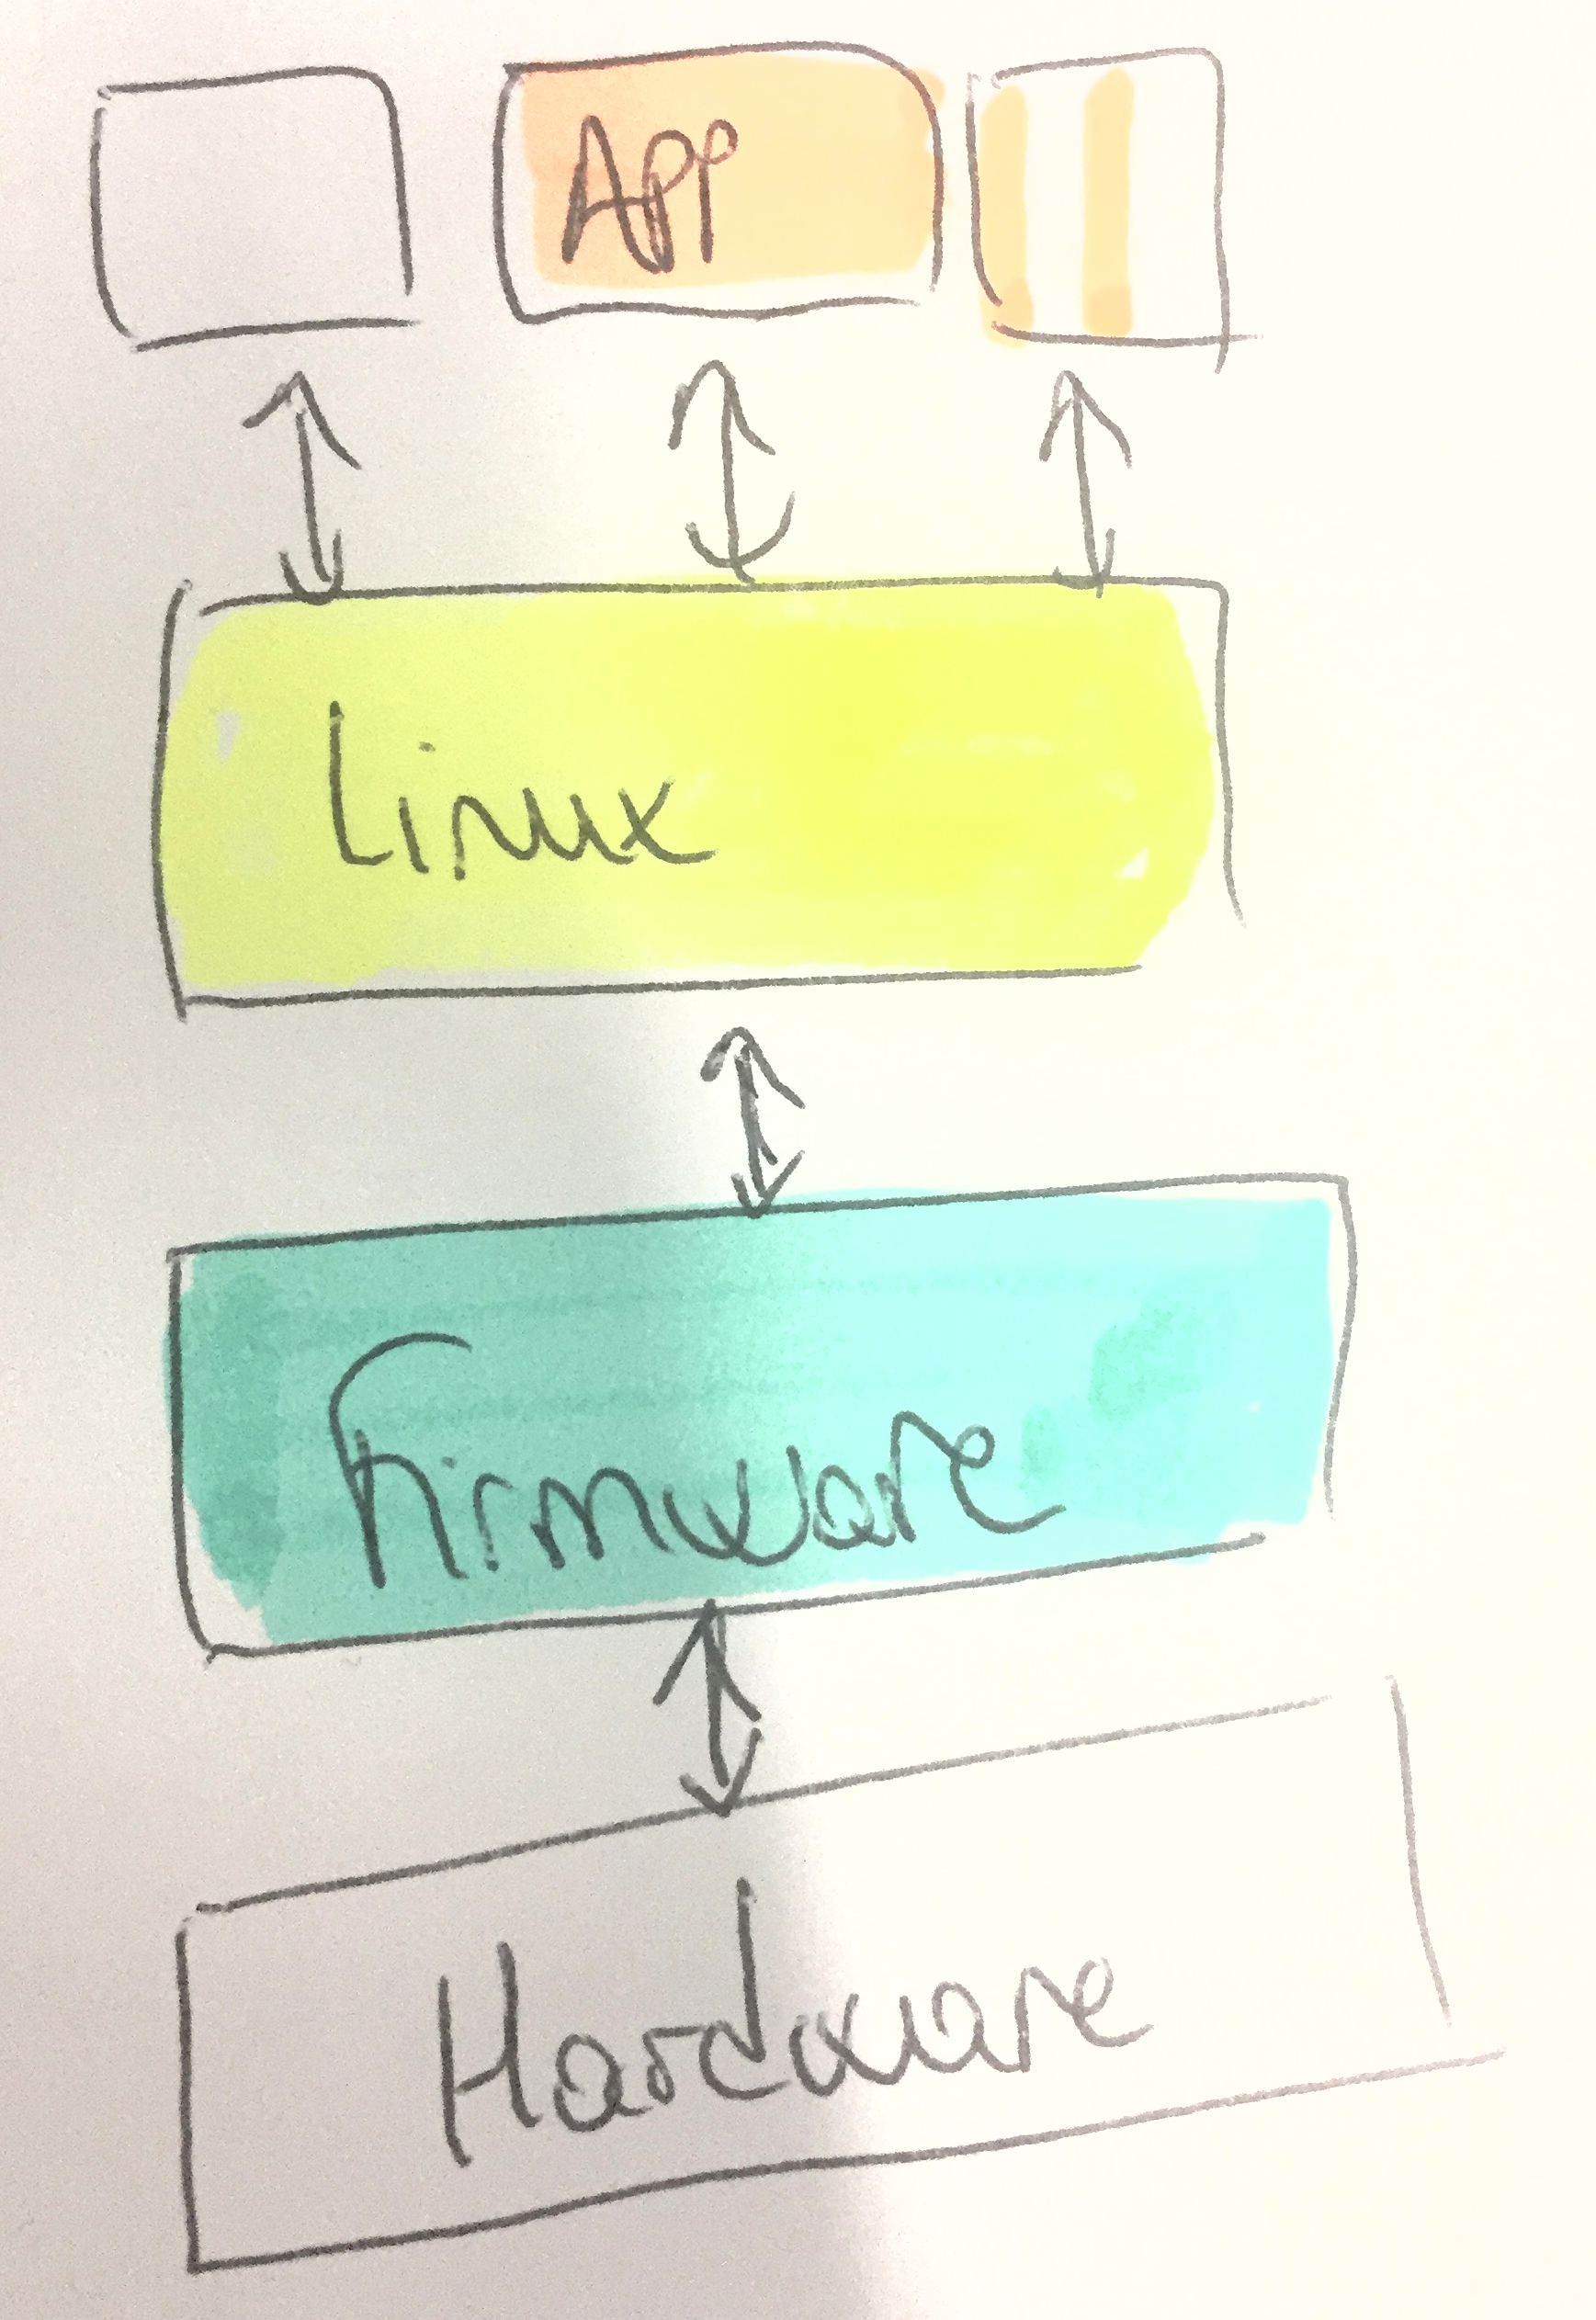 APP
Linux
Firmware
Hardware